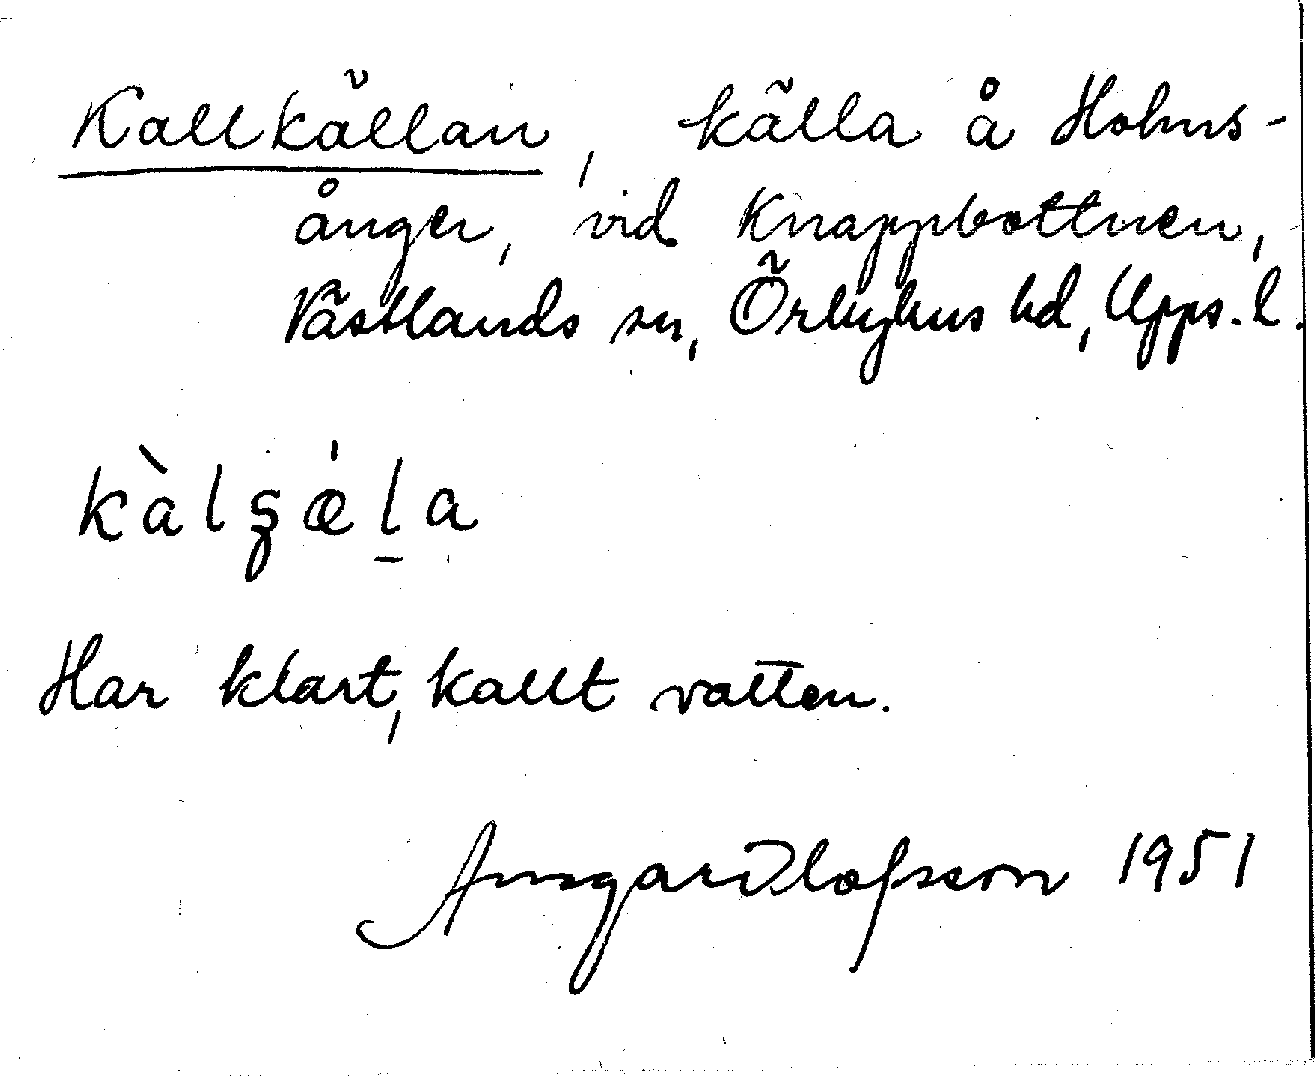 Kallkällan, källa å Holms-
ånger, vid Knappbottnen,
Västlands sn, Örbyhus hd, Upps. l.
kàlʂǽl̠a
Har klart, kallt vatten.
Ansgar Olofsson 1951